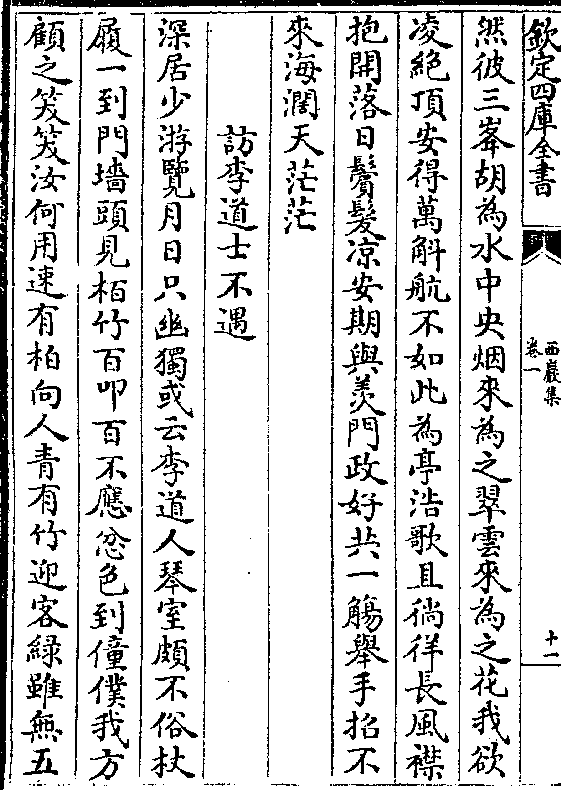 欽定四庫全書
西巖集
卷一
十一
然彼三峯胡為水中央烟來為之翠雲來為之花我欲
凌絶頂安得萬斛航不如此為亭浩歌且徜徉長風襟
抱開落日鬢髮凉安期與羡門政好共一觴舉手招不
來海濶天茫茫
訪李道士不遇
深居少游覽月日只幽獨或云李道人琴室頗不俗杖
履一到門墻頭見栢竹百叩百不應忿色到僮僕我方
顧之笑笑汝何用速有柏向人青有竹迎客緑雖無五